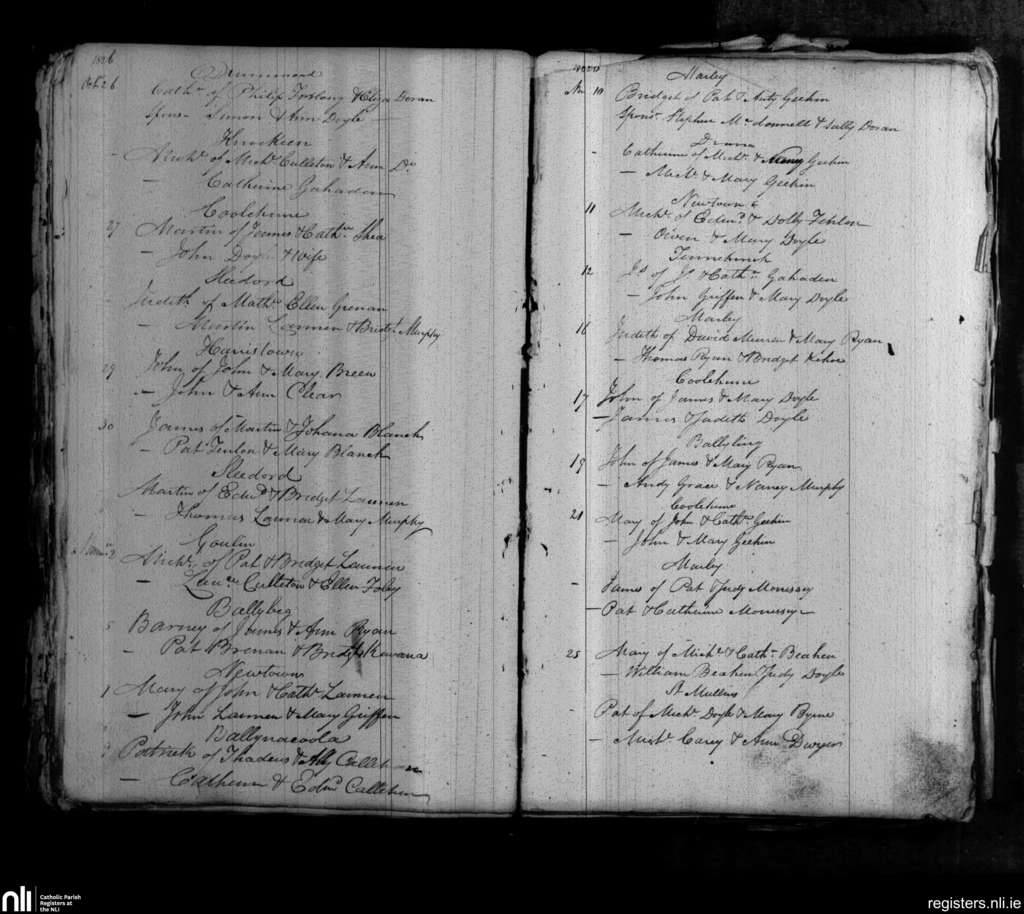 1826
Drummond
Oct 26
Cath. of Philip Forlong & Eliza Doran
Spons. Simon & Ann Doyle
Knockeen
Mich. of Mich. Culleton & Ann Do.
— Catherine Gahadan
Coolehune
27 Martin of James & Cath. Shea
— John Doyle & Wife
Sleedord
Judith of Math. Ellen Grenan
— Martin Larinen & Bridgt Murphy
Harristown
29 John of John & Mary Breen
— John & Ann Clear
30 James of Martin & Johana Blanch
— Pat Fenlon & Mary Blanch
Sleedord
Martin of Edwd & Bridget Larinen
— Thomas Larinen & Mary Murphy
Goulin
2 Mich. of Pat & Bridget Larinen
— Culleton & Ellen Foley
Ballybeg
5 Barney of James & Ann Ryan
— Pat Brenan & Bridgt Kavana
Newtown
Mary of John & Cath. Larinen
— John Larinen & Mary Griffen
Ballynacoola
9 Patrick of Thadeus & Culleton
— Catherine & Edwd Culleton
Marley
Nov 10 Bridget of Pat & Anty Geehin
Spons. Stephen McDonnell & Sally Doran
Drumin
- Catherine of Mich. & Nancy Geehin
— Mich. & Mary Geehin
Newtown
11 Mich. of Edwd & Dolly Fenlon
— Owen & Mary Doyle
Tinnehinch
12 Js of Js & Cath. Gahaden
— John Griffen & Mary Doyle
Marley
16 Judith of David Murren & Mary Ryan
— Thomas Ryan & Bridget Kehoe
Coolehune
17 John of James & Mary Doyle
— James & Judeth Doyle
Ballyling
19 John of James & Mary Ryan
— Andy Grace & Nancy Murphy
Coolehune
21 Mary of John & Cath. Geehin
— John & Mary Geehin
Marley
- James of Pat & Judy Monessy
— Pat & Catherine Monessy
25 Mary of Mich. & Cath. Beahen
— William Beahen Judy Doyle
St Mullins
- Pat of Mich. Doyle & Mary Byrne
— Mich. Carey & Ann Dwyer
nli
Catholic Parish
Registers at
the NLI
registers.nli.ie